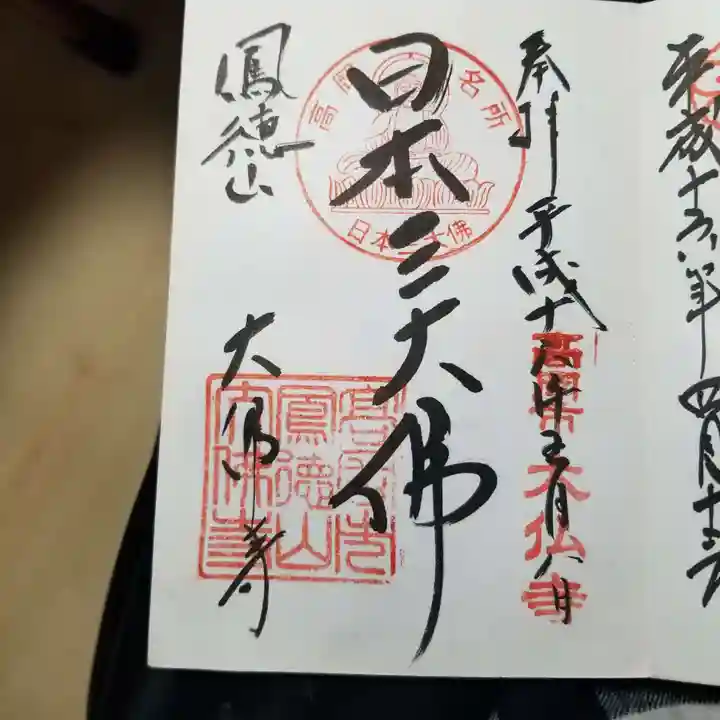 平成十六年四月十六日
奉拝 平成十六年五月八日
高岡大仏寺
高岡名所
日本三大佛
日本三大佛
鳳徳山
大佛寺
高岡市
鳳徳山
大佛寺